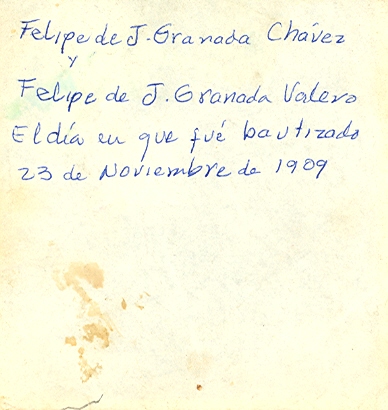 Felipe de J. Granada Chávez
y
Felipe de J. Granada Valero
El día en que fué bautizado
23 de Noviembre de 1909